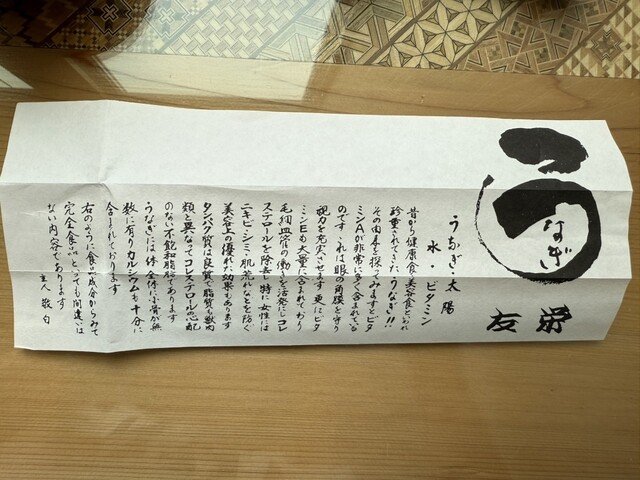 うなぎ
友栄
うなぎ・太陽
水・ビタミン
昔から健康食、美容食といわれ
珍重されてきたうなぎ!!
その由来を探ってみますとビタ
ミンAが非常に多く含まれている
のです これは眼の角膜を守り
視力を充実させます 更にビタ
ミンEも大量に含まれており
毛細血管の働きを活発にコレ
ステロールを除去 特に女性には
ニキビ・シミ・肌荒れなどを防ぐ
美容上の優れた効果もあります
タンパク質は良質で脂質も獣肉
類と異なってコレステロールの心配
のない不飽和脂酸であります
うなぎには一体全体に小骨が無
数に有りカルシウムも十分に
含まれております
右のように食品成分からみて
完全食品といっても間違いは
ない内容であります
主人 敬白